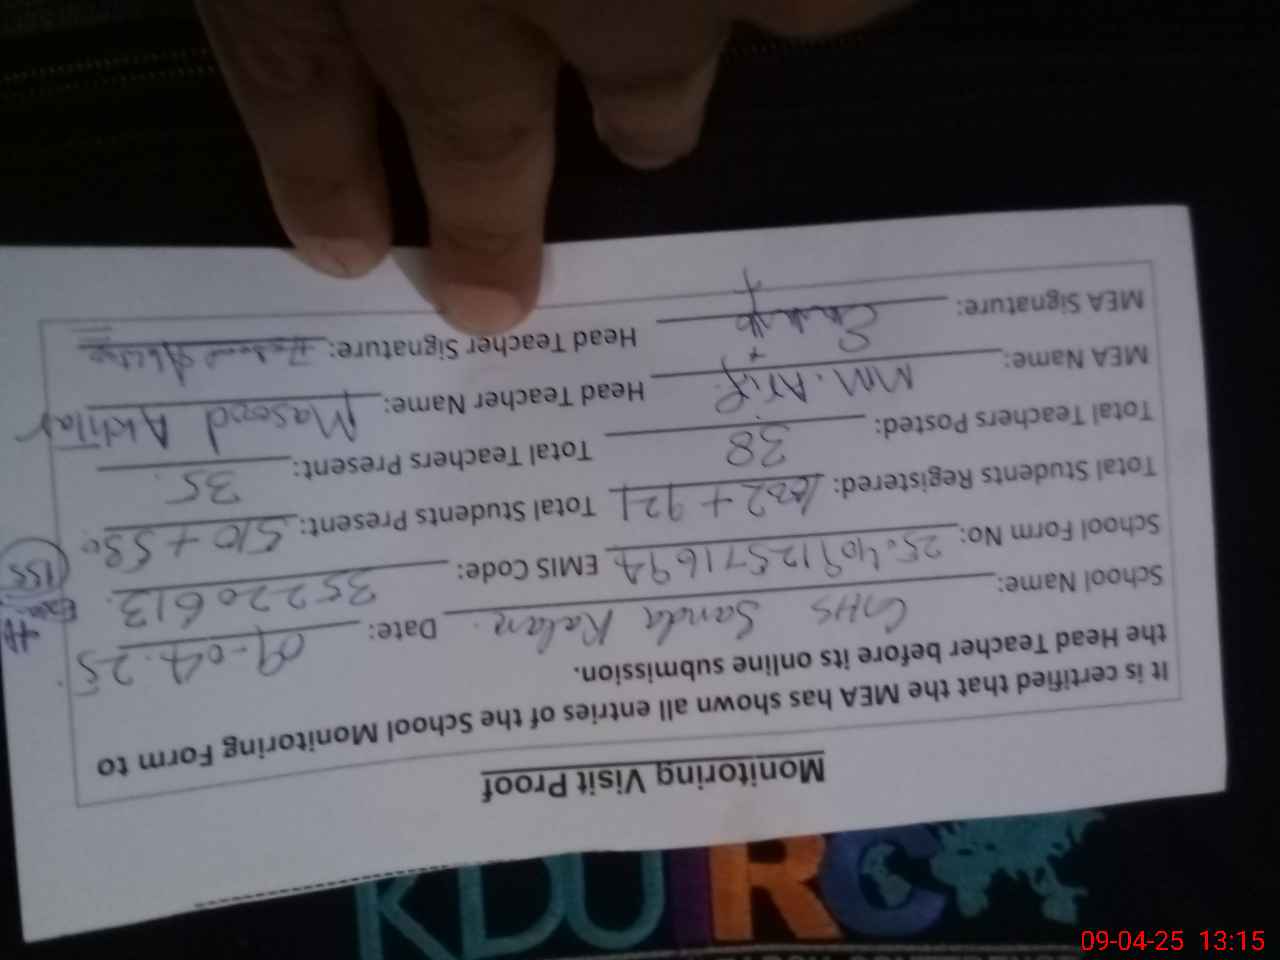 Monitoring Visit Proof
It is certified that the MEA has shown all entries of the School Monitoring Form to
the Head Teacher before its online submission.
School Name: GHS Sanda Kalan. Date: 09-04-25
School Form No: EMIS Code: 35220613
Total Students Registered: + 921 Total Students Present: 510 + 530
Total Teachers Posted: 38 Total Teachers Present: 35.
MEA Name: MM. Arif Head Teacher Name: Masood Akhtar
MEA Signature: Head Teacher Signature:
155
KDURC
09-04-25 13:15